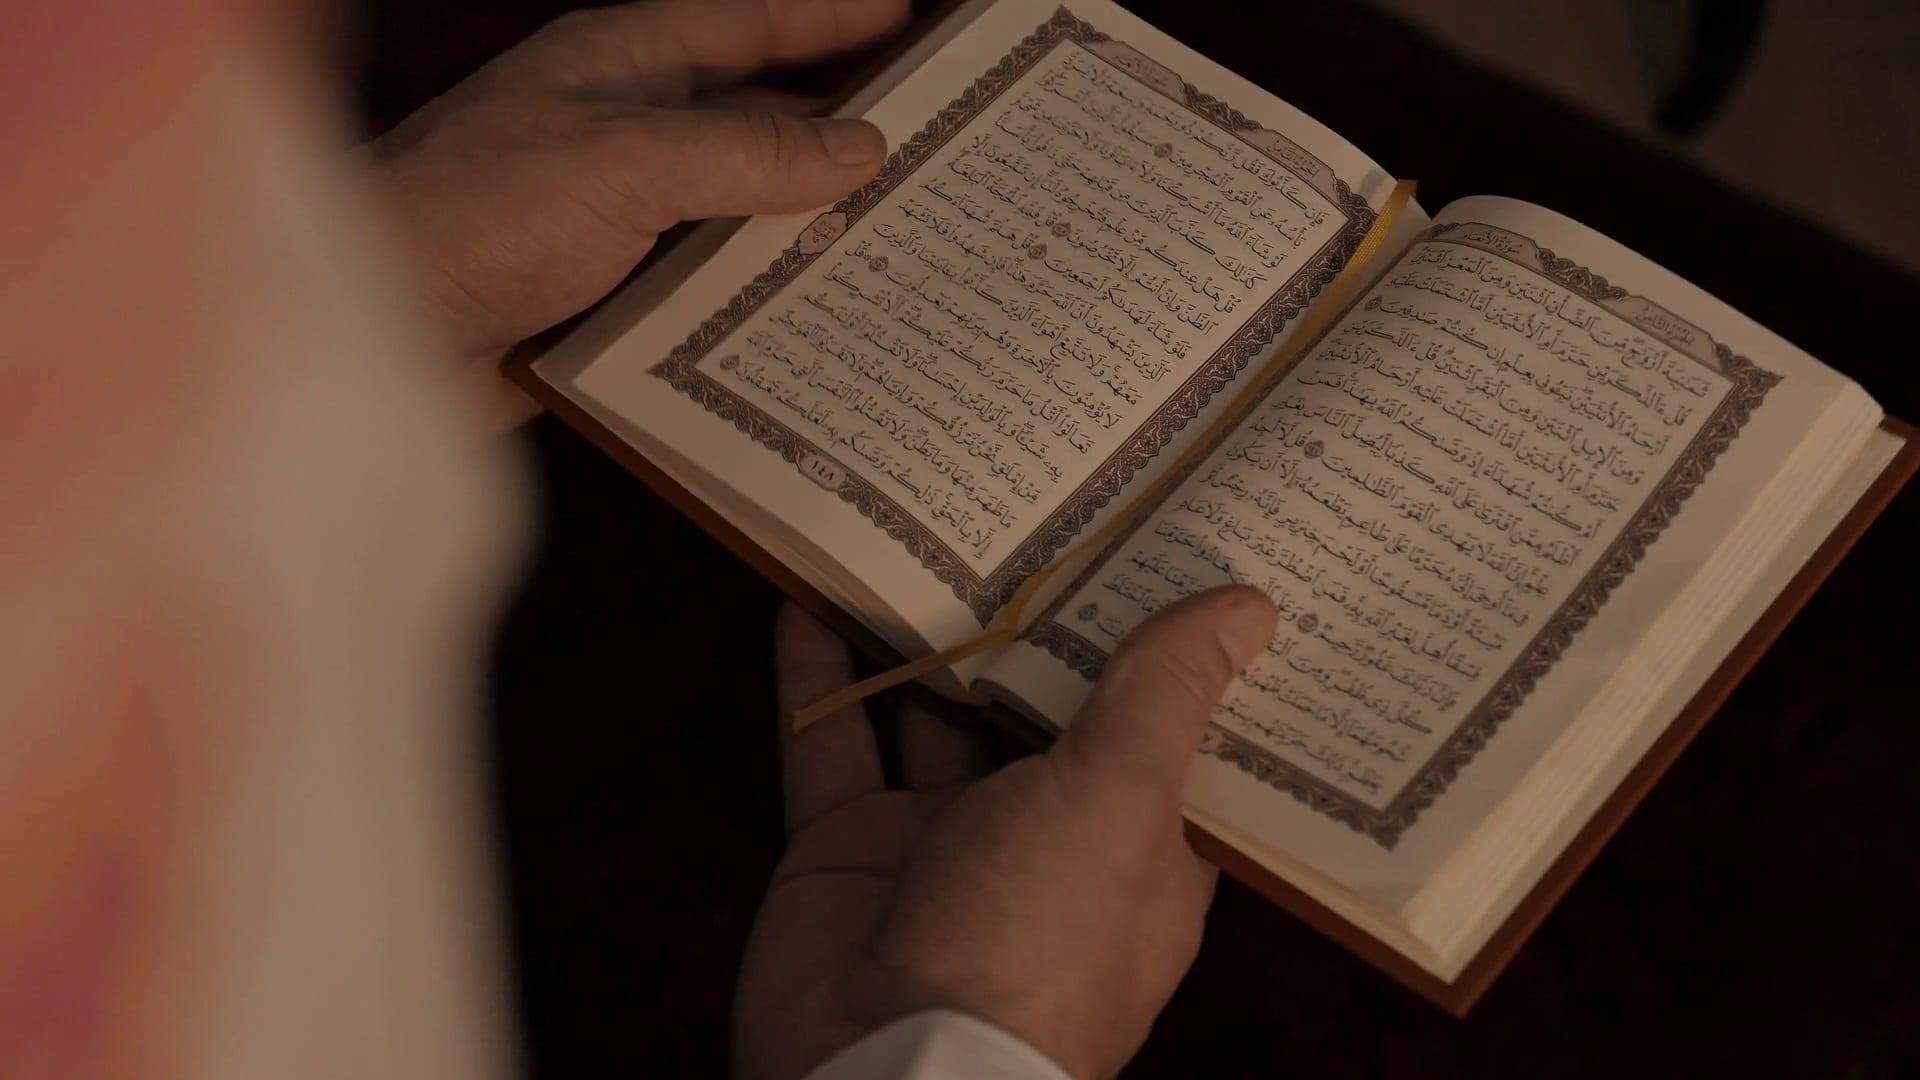 سُورَةُ الأَنْعَامِ
الجُزْءُ الثَّامِنُ
ثَمَٰنِيَةَ أَزْوَٰجٍ مِّنَ ٱلضَّأْنِ ٱثْنَيْنِ وَمِنَ ٱلْمَعْزِ ٱثْنَيْنِ
قُلْ ءَآلذَّكَرَيْنِ حَرَّمَ أَمِ ٱلْأُنثَيَيْنِ أَمَّا ٱشْتَمَلَتْ عَلَيْهِ
أَرْحَامُ ٱلْأُنثَيَيْنِ نَبِّـُٔونِي بِعِلْمٍ إِن كُنتُمْ صَٰدِقِينَ ١٤٣
وَمِنَ ٱلْإِبِلِ ٱثْنَيْنِ وَمِنَ ٱلْبَقَرِ ٱثْنَيْنِ قُلْ ءَآلذَّكَرَيْنِ
حَرَّمَ أَمِ ٱلْأُنثَيَيْنِ أَمَّا ٱشْتَمَلَتْ عَلَيْهِ أَرْحَامُ ٱلْأُنثَيَيْنِ
أَمْ كُنتُمْ شُهَدَآءَ إِذْ وَصَّىٰكُمُ ٱللَّهُ بِهَٰذَا فَمَنْ
أَظْلَمُ مِمَّنِ ٱفْتَرَىٰ عَلَى ٱللَّهِ كَذِبًا لِّيُضِلَّ ٱلنَّاسَ بِغَيْرِ
عِلْمٍ إِنَّ ٱللَّهَ لَا يَهْدِي ٱلْقَوْمَ ٱلظَّٰلِمِينَ ١٤٤ قُل لَّآ أَجِدُ
فِي مَآ أُوحِيَ إِلَيَّ مُحَرَّمًا عَلَىٰ طَاعِمٍ يَطْعَمُهُۥٓ إِلَّآ أَن يَكُونَ
مَيْتَةً أَوْ دَمًا مَّسْفُوحًا أَوْ لَحْمَ خِنزِيرٍ فَإِنَّهُۥ رِجْسٌ أَوْ
فِسْقًا أُهِلَّ لِغَيْرِ ٱللَّهِ بِهِۦ فَمَنِ ٱضْطُرَّ غَيْرَ بَاغٍ وَلَا عَادٍ
فَإِنَّ رَبَّكَ غَفُورٌ رَّحِيمٌ ١٤٥ وَعَلَى ٱلَّذِينَ هَادُوا۟ حَرَّمْنَا
كُلَّ ذِي ظُفُرٍ وَمِنَ حَرَّمْنَا عَلَيْهِمْ
شُحُومَهُمَآ إِلَّا مَا حَمَلَتْ ظُهُورُهُمَآ مَا ٱخْتَلَطَ
بِعَظْمٍ ذَٰلِكَ جَزَيْنَٰهُم بِبَغْيِهِمْ ١٤٦
الجُزْءُ الثَّامِنُ
سُورَةُ الأَنْعَامِ
فَإِن كَذَّبُوكَ فَقُل رَّبُّكُمْ ذُو رَحْمَةٍ وَٰسِعَةٍ وَلَا يُرَدُّ
بَأْسُهُۥ عَنِ ٱلْقَوْمِ ٱلْمُجْرِمِينَ ١٤٧ سَيَقُولُ ٱلَّذِينَ أَشْرَكُوا۟
لَوْ شَآءَ ٱللَّهُ مَآ أَشْرَكْنَا وَلَآ ءَابَآؤُنَا وَلَا حَرَّمْنَا مِن شَيْءٍ
كَذَٰلِكَ كَذَّبَ ٱلَّذِينَ مِن قَبْلِهِمْ حَتَّىٰ ذَاقُوا۟ بَأْسَنَا
قُلْ هَلْ عِندَكُم مِّنْ عِلْمٍ فَتُخْرِجُوهُ لَنَآ إِن تَتَّبِعُونَ إِلَّا
ٱلظَّنَّ وَإِنْ أَنتُمْ إِلَّا تَخْرُصُونَ ١٤٨ قُلْ فَلِلَّهِ ٱلْحُجَّةُ ٱلْبَٰلِغَةُ
فَلَوْ شَآءَ لَهَدَىٰكُمْ أَجْمَعِينَ ١٤٩ قُلْ هَلُمَّ شُهَدَآءَكُمُ
ٱلَّذِينَ يَشْهَدُونَ أَنَّ ٱللَّهَ حَرَّمَ هَٰذَا فَإِن شَهِدُوا۟ فَلَا تَشْهَدْ
مَعَهُمْ وَلَا تَتَّبِعْ أَهْوَآءَ ٱلَّذِينَ كَذَّبُوا۟ بِـَٔايَٰتِنَا وَٱلَّذِينَ
لَا يُؤْمِنُونَ بِٱلْأَخِرَةِ وَهُم بِرَبِّهِمْ يَعْدِلُونَ ١٥٠ قُلْ
تَعَالَوْا۟ أَتْلُ مَا حَرَّمَ رَبُّكُمْ عَلَيْكُمْ أَلَّا تُشْرِكُوا۟
بِهِۦ شَيْـًٔا وَبِٱلْوَٰلِدَيْنِ إِحْسَٰنًا وَلَا تَقْتُلُوٓا۟ أَوْلَٰدَكُم
مِّنْ إِمْلَٰقٍ نَّحْنُ نَرْزُقُكُمْ وَإِيَّاهُمْ وَلَا تَقْرَبُوا۟ ٱلْفَوَٰحِشَ
مَا ظَهَرَ مِنْهَا وَمَا بَطَنَ وَلَا تَقْتُلُوا۟ ٱلنَّفْسَ ٱلَّتِي حَرَّمَ ٱللَّهُ
إِلَّا بِٱلْحَقِّ ذَٰلِكُمْ وَصَّىٰكُم بِهِۦ لَعَلَّكُمْ تَعْقِلُونَ ١٥١
١٤٨